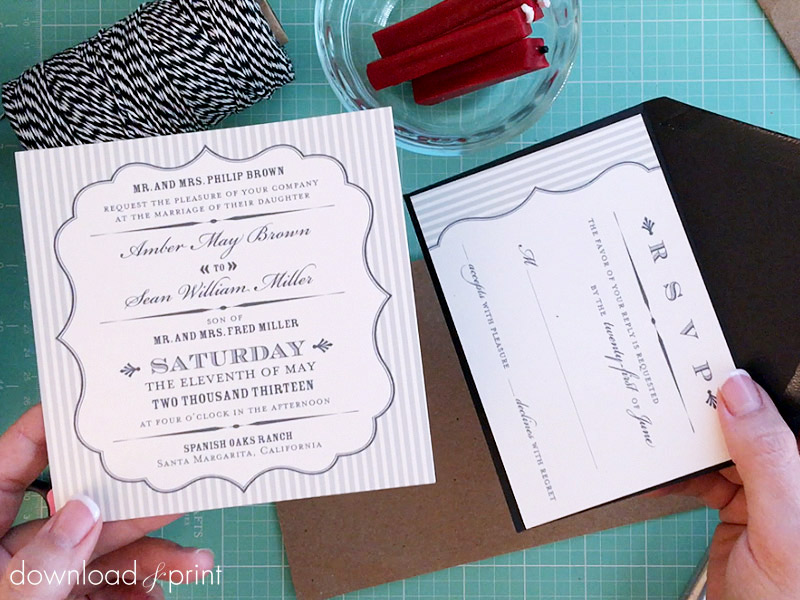 MR. AND MRS. PHILIP BROWN
REQUEST THE PLEASURE OF YOUR COMPANY
AT THE MARRIAGE OF THEIR DAUGHTER
Amber May Brown
« TO »
Sean William Miller
SON OF
MR. AND MRS. FRED MILLER
SATURDAY
THE ELEVENTH OF MAY
TWO THOUSAND THIRTEEN
AT FOUR O'CLOCK IN THE AFTERNOON
SPANISH OAKS RANCH
SANTA MARGARITA, CALIFORNIA
RSVP
THE FAVOR OF YOUR REPLY IS REQUESTED
BY THE twenty-first OF June
M
accepts WITH PLEASURE declines WITH REGRET
download & print